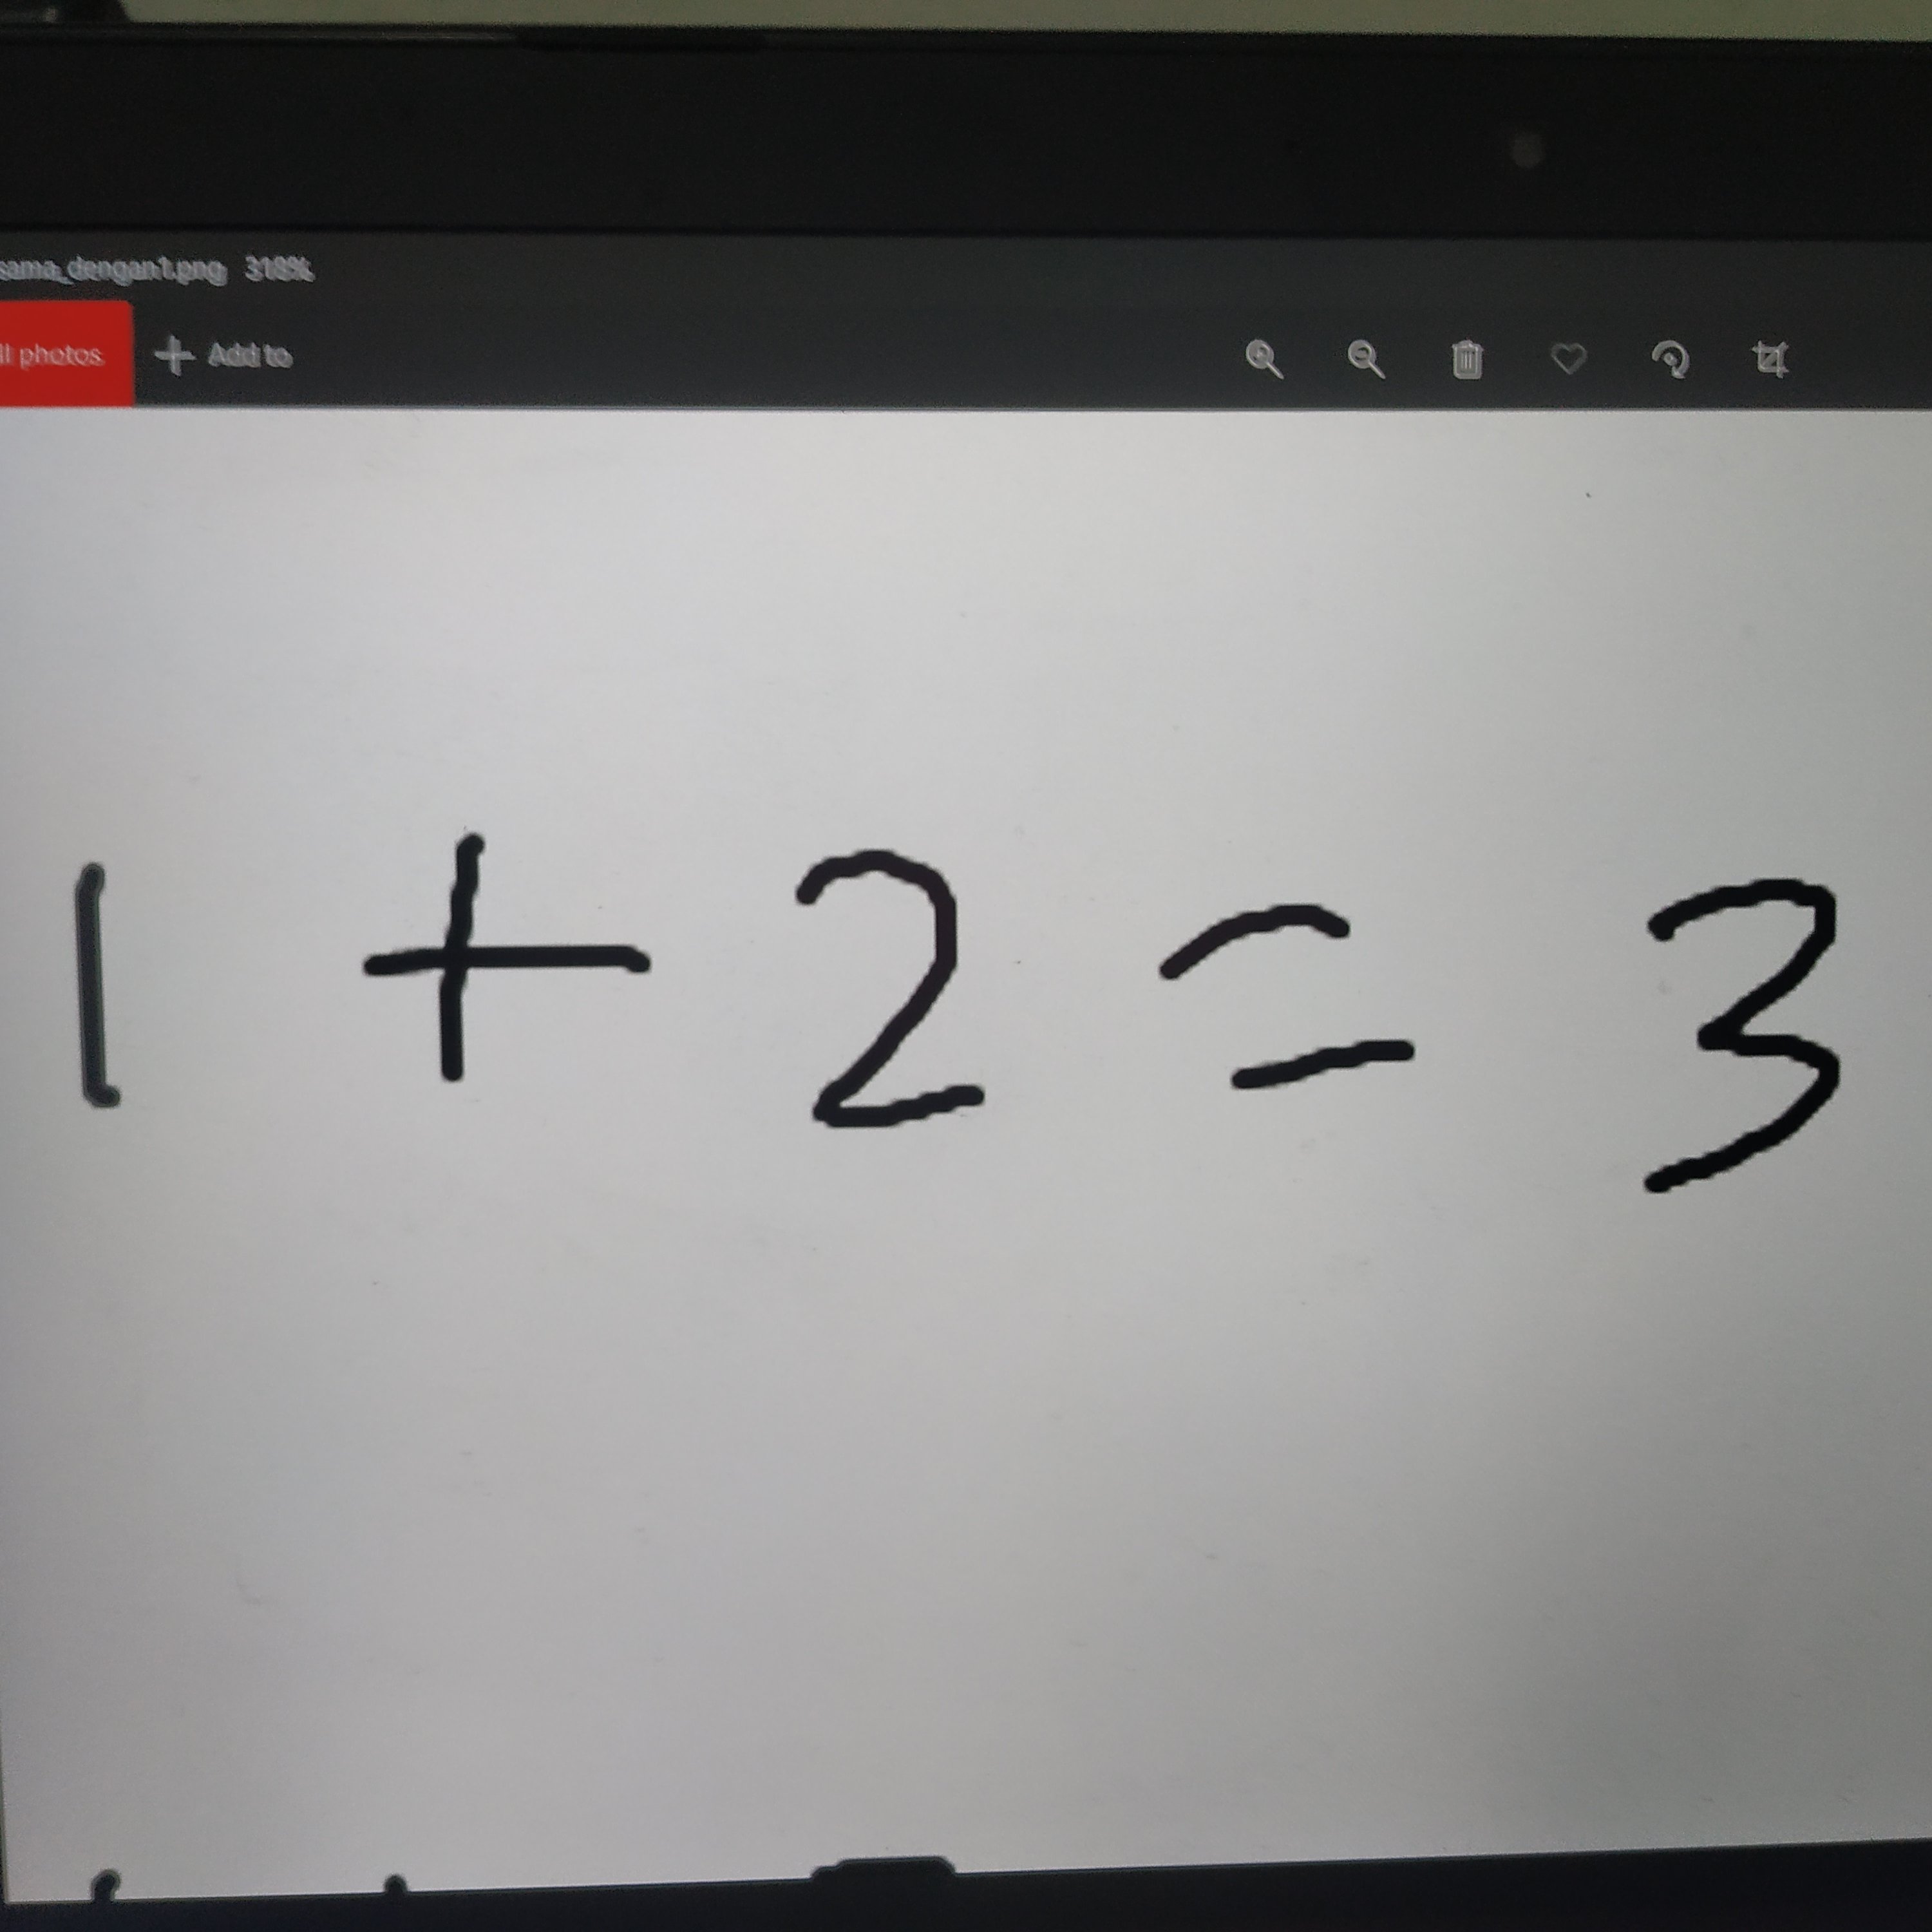 sama_dengan1.png 318%
ll photos + Add to
1 + 2 = 3